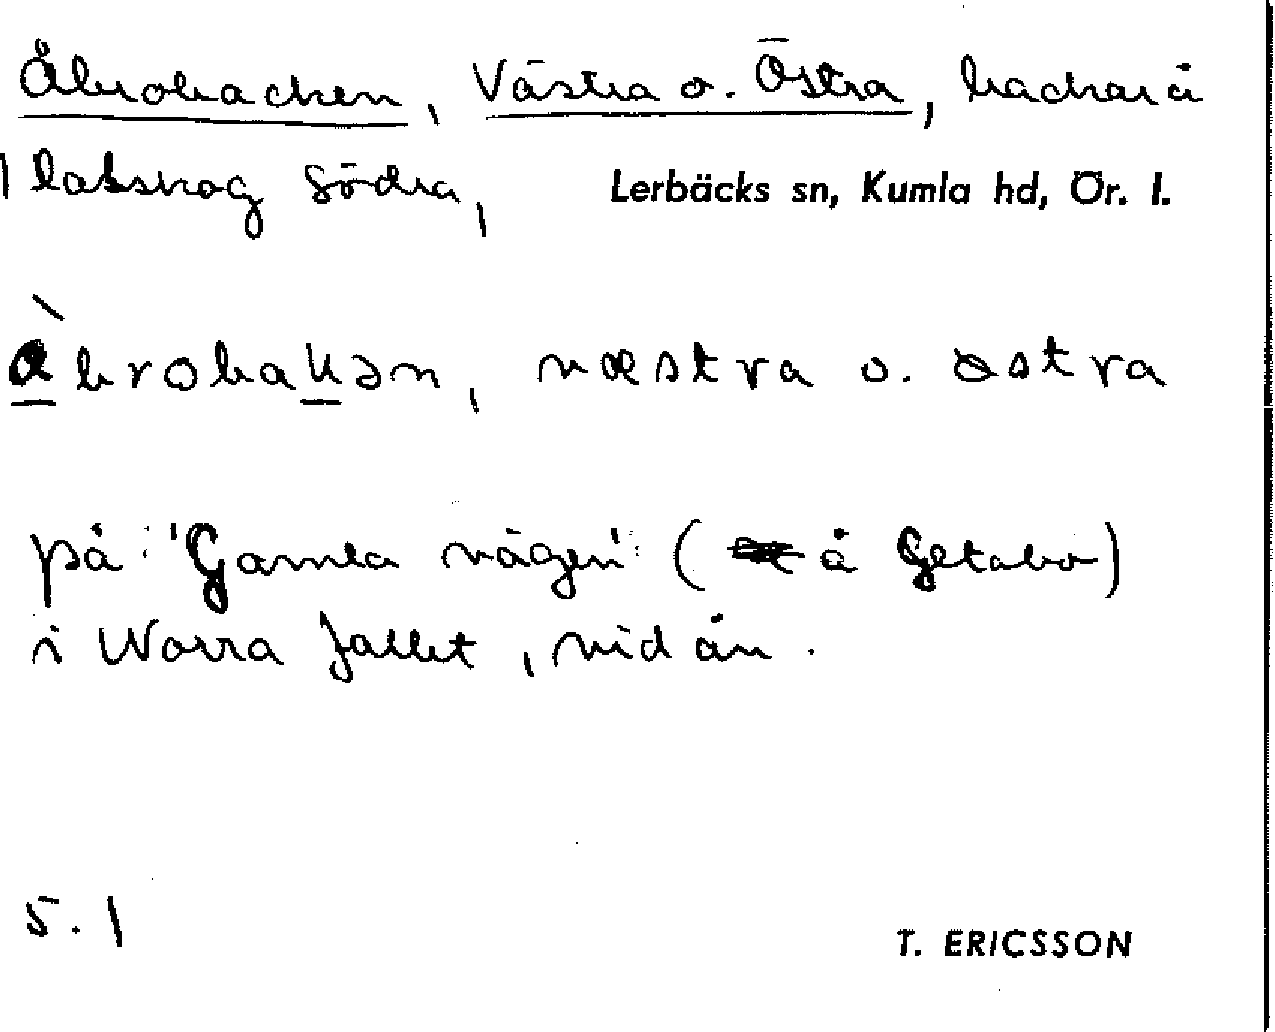 Åbrobacken, Västra o. Östra, backar å
Södra, Lerbäcks sn, Kumla hd, Ör. l.
åbrobakən, væstra o. östra
på "Gamla vägen" (å Getabo)
i Norra fallet, vid ån.
5.1
T. ERICSSON